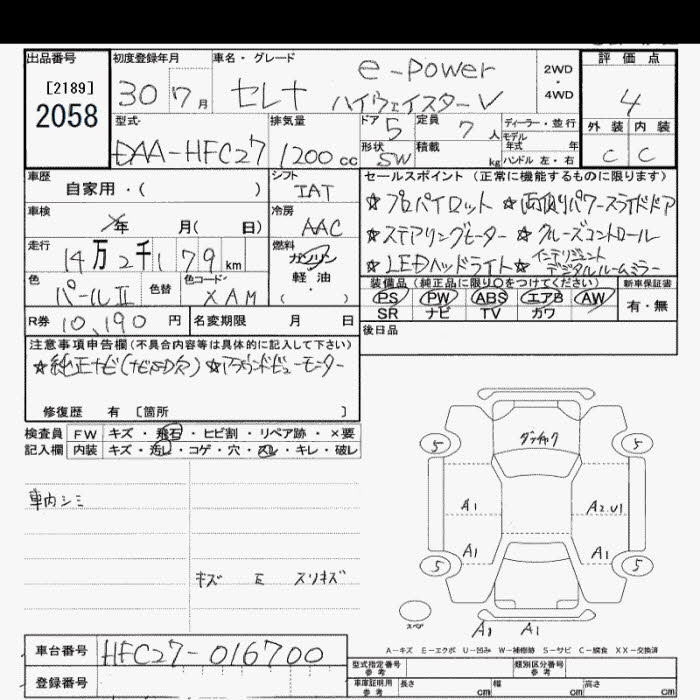 出品番号 初度登録年月 車名・グレード 評価点
[2189]
2058
30 7月 セレナ e-power ハイウェイスターV
2WD・4WD
4
型式 排気量 ドア 定員 ディーラー・並行
DAA-HFC27 1200cc 5 7人 モデル年式 年
形状 積載 ハンドル 左・右
SW kg
外装 内装
C C
車歴 シフト セールスポイント (正常に機能するものに限ります)
自家用・( ) IAT
☆プロパイロット ☆両側パワースライドドア
車検 冷房
年 月( 日) AAC
☆ステアリングヒーター ☆クルーズコントロール
走行 燃料
14万2千179km ガソリン
軽・油
( ・ )
☆LEDヘッドライト ☆インテリジェント
デジタルルームミラー
色 色替 色コード
パールII XAM
装備品 (純正品に限り○をつけてください) 新車保証書
PS PW ABS エアB AW 有・無
SR ナビ TV カワ
R券 10,190円 名変期限 月 日
後日品
注意事項申告欄(不具合内容等は具体的に記入して下さい)
☆純正ナビ(ナビSD欠) ☆アラウンドビューモニター
修復歴 有 〔箇所 〕
検査員 FW キズ・飛石・ヒビ割・リペア跡・×要
記入欄 内装 キズ・汚し・コゲ・穴・スレ・キレ・破し
車内シミ
キズ E スリキズ
5 ダッチャク 5
A1 A2.U1
A1 A1
5 5
スペア
A1 A1
A-キズ E-エクボ U-凹み W-補修跡 S-サビ C-腐食 XX-交換済
車台番号 HFC27-016700
登録番号
型式指定番号 参考 類別区分番号 参考
車庫証明用 参考 長さ cm 幅 cm 高さ cm